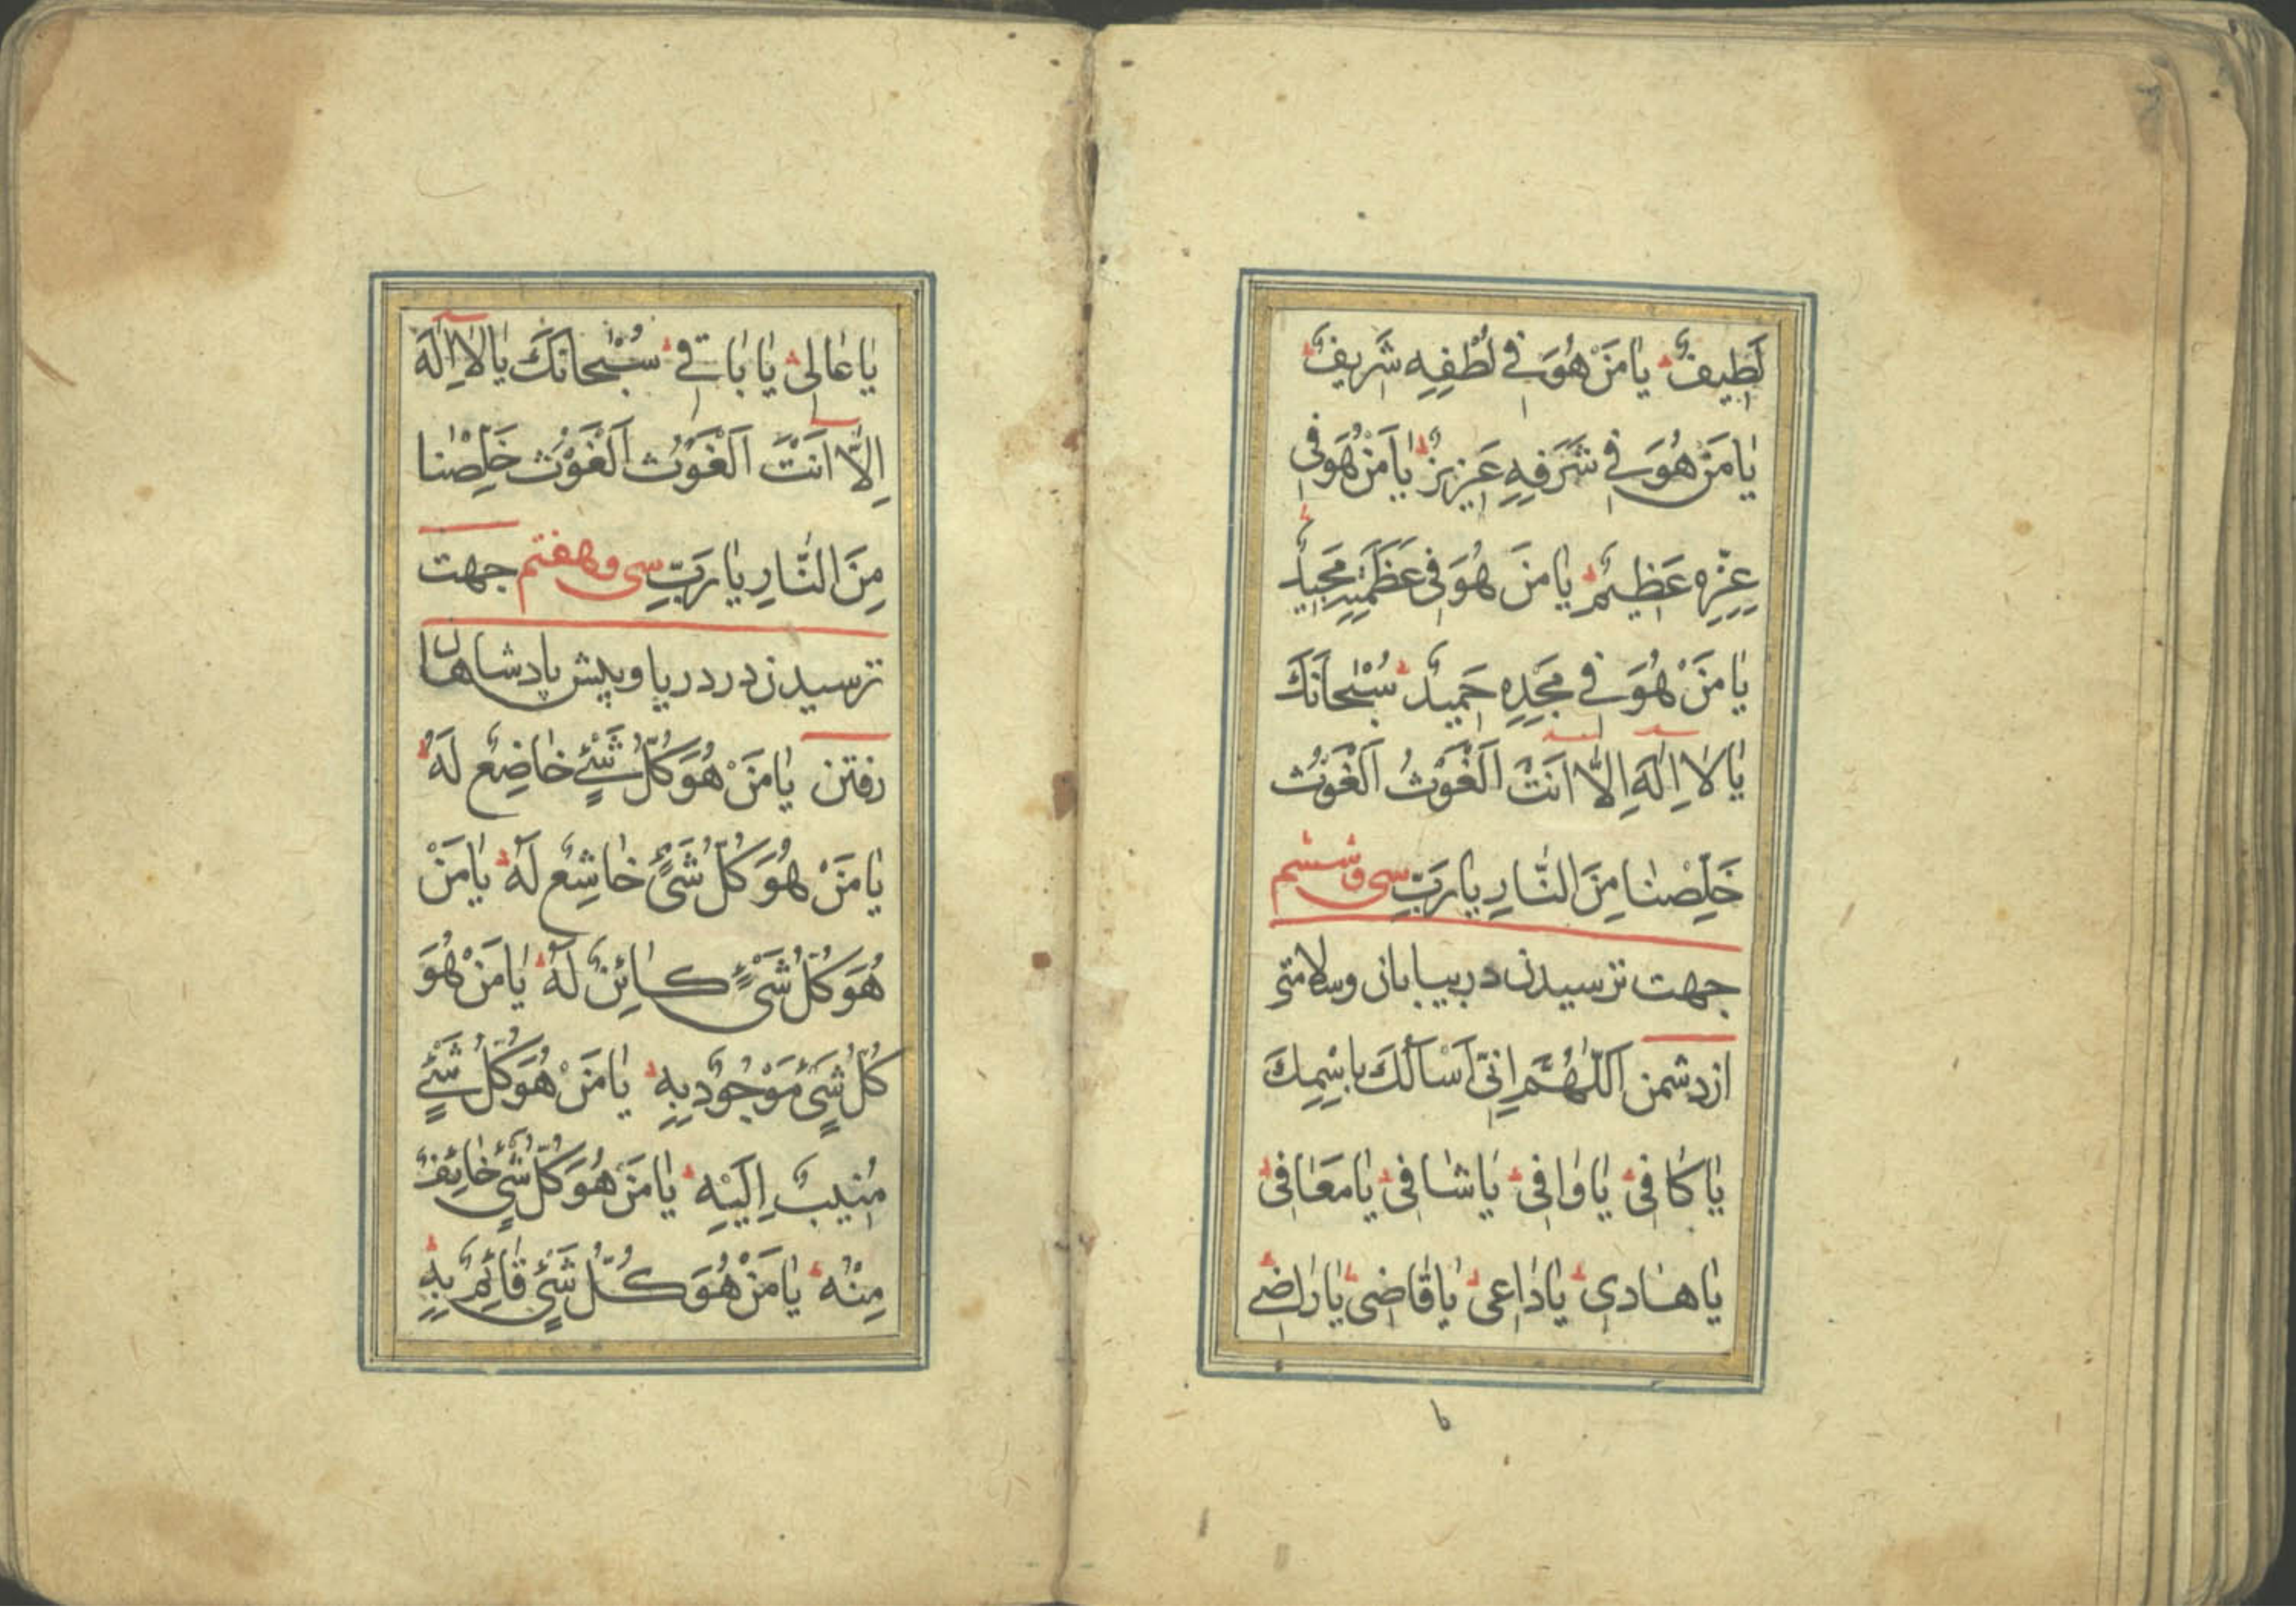 لَطِيفٌ يٰا مَنْ هُوَ في لُطْفِهِ شَريفٌ
يٰا مَنْ هُوَ في شَرَفِهِ عَزيزٌ يٰا مَنْ هُوَ في
عِزِّهِ عَظيمٌ يٰا مَنْ هُوَ في عَظَمَتِهِ مَجيدٌ
يٰا مَنْ هُوَ في مَجْدِهِ حَميدٌ سُبْحانَكَ
يٰا لاٰ اِلٰهَ اِلاّٰ اَنْتَ اَلْغَوْثُ اَلْغَوْثُ
خَلِّصْنٰا مِنَ النّٰارِ يٰا رَبِّ سی و ششم
جهت ترسیدن در بیابان وسلامتی
از دشمن اَللّٰهُمَّ اِنّي اَسْأَلُكَ بِاسْمِكَ
يٰا كٰافي يٰا وٰافي يٰا شٰافي يٰا مُعٰافي
يٰا هٰادي يٰا دٰاعي يٰا قٰاضي يٰا رٰاضي
يٰا عٰالي يٰا بٰاقي سُبْحانَكَ يٰا لاٰ اِلٰهَ
اِلاّٰ اَنْتَ اَلْغَوْثُ اَلْغَوْثُ خَلِّصْنٰا
مِنَ النّٰارِ يٰا رَبِّ سی و هفتم جهت
ترسیدن در دریا و پیش پادشاهان
رفتن يٰا مَنْ هُوَ كُلُّ شَيْءٍ خٰاضِعٌ لَهُ
يٰا مَنْ هُوَ كُلُّ شَيْءٍ خٰاشِعٌ لَهُ يٰا مَنْ
هُوَ كُلُّ شَيْءٍ كٰائِنٌ لَهُ يٰا مَنْ هُوَ
كُلُّ شَيْءٍ مَوْجُودٌ بِهِ يٰا مَنْ هُوَ كُلُّ شَيْءٍ
مُنيبٌ اِلَيْهِ يٰا مَنْ هُوَ كُلُّ شَيْءٍ خٰائِفٌ
مِنْهُ يٰا مَنْ هُوَ كُلُّ شَيْءٍ قٰائِمٌ بِهِ